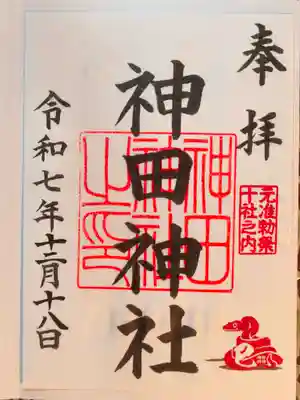 奉拝
元准勅祭
十社之内
神田神社
神田
神社
之印
令和七年十二月十八日